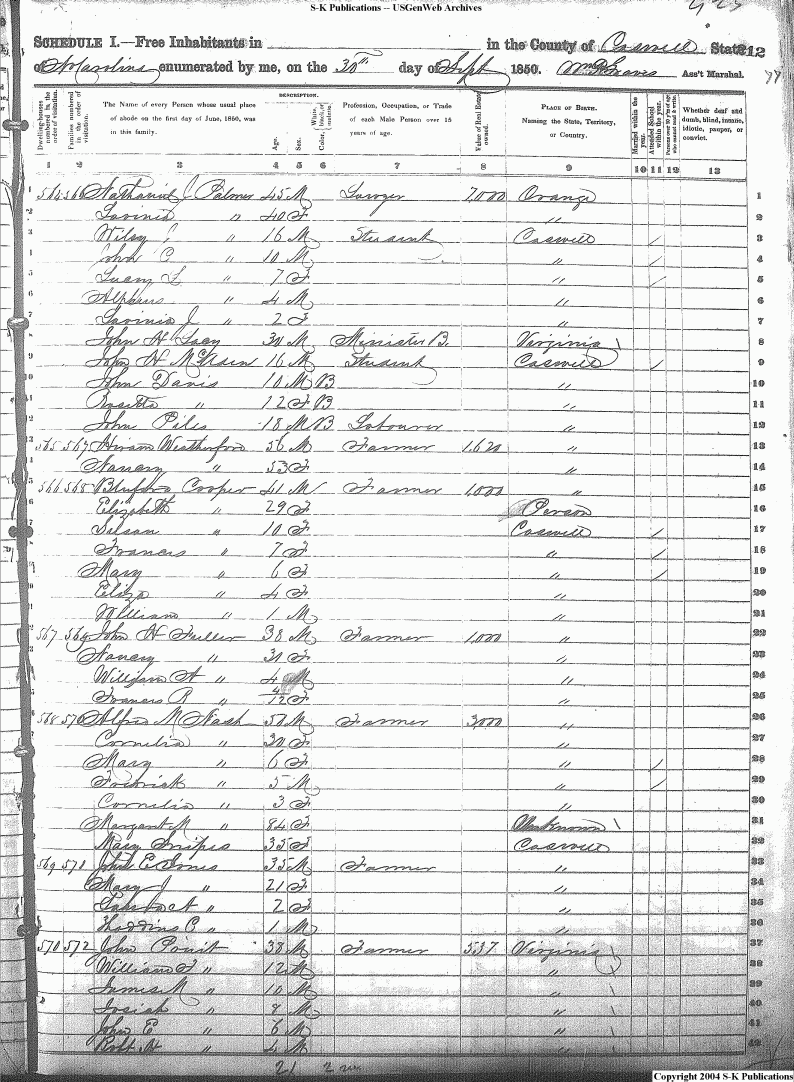 S-K Publications -- USGenWeb Archives
SCHEDULE I.—Free Inhabitants in in the County of Caswell State 212
of N Carolina enumerated by me, on the 30th day of Sept 1850. Wm Graves Ass't Marshal.
Dwelling-houses numbered in the order of visitation.
Families numbered in the order of visitation.
The Name of every Person whose usual place of abode on the first day of June, 1850, was in this family.
DESCRIPTION.
Age.
Sex.
Color,
Profession, Occupation, or Trade of each Male Person over 15 years of age.
Value of Real Estate owned.
PLACE OF BIRTH. Naming the State, Territory, or Country.
Married within the year.
Attended School within the year.
Persons over 20 y'rs of age who cannot read & write.
Whether deaf and dumb, blind, insane, idiotic, pauper, or convict.
1 2 3 4 5 6 7 8 9 10 11 12 13
1 564 566 Nathaniel J Palmer 45 M Lawyer 7,000 Orange 1
2 Lavinia " 40 F " 2
3 Wiley J " 16 M Student Caswell / 3
4 John C " 10 M " / 4
5 Lucy L " 7 F " / 5
6 Alpheus " 4 M " 6
7 Lavinia J " 2 F " 7
8 John H Lacy 30 M Minister B. Virginia 8
9 John H McNain 16 M Student Caswell / 9
10 John Davis 10 M B " 10
11 Rosetta " 12 F B " 11
12 John Piles 18 M B Labourer " 12
565 567 Hiram Weatherford 56 M Farmer 1,620 " 13
Nancy " 53 F " 14
566 568 Bluford Cooper 41 M Farmer 1,000 " 15
Elizabeth " 29 F Person 16
Susan " 10 F Caswell / 17
Frances " 7 F " / 18
Mary " 6 F " / 19
Eliza " 4 F " 20
William " 1 M " 21
567 569 John H Fuller 38 M Farmer 1,000 " 22
Nancy " 30 F " 23
William A " 4 M " 24
Frances R " 4/12 F " 25
568 570 Alfred M Nash 50 M Farmer 3,000 " 26
Cornelia " 30 F " 27
Mary " 6 F " / 28
Fredrick " 5 M " / 29
Cornelia " 3 F " 30
Margaret M " 84 F Unknown 31
Mary Snipes 35 F Caswell 32
569 571 John E Jones 35 M Farmer " 33
Mary J " 21 F " 34
A " 2 F " 35
" 1 M " 36
570 572 John 38 M Farmer 537 Virginia 37
William F " 12 M " 38
James M " 10 M " 39
Josiah " 8 M " 40
John E " 6 M " 41
Robt H " 4 M " 42
21
Copyright 2004 S-K Publications